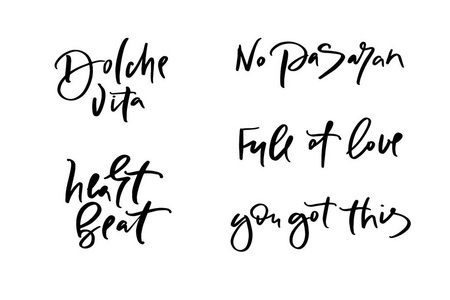 Dolche
Vita
No pasaran
Full of love
heart
Beat
you got this